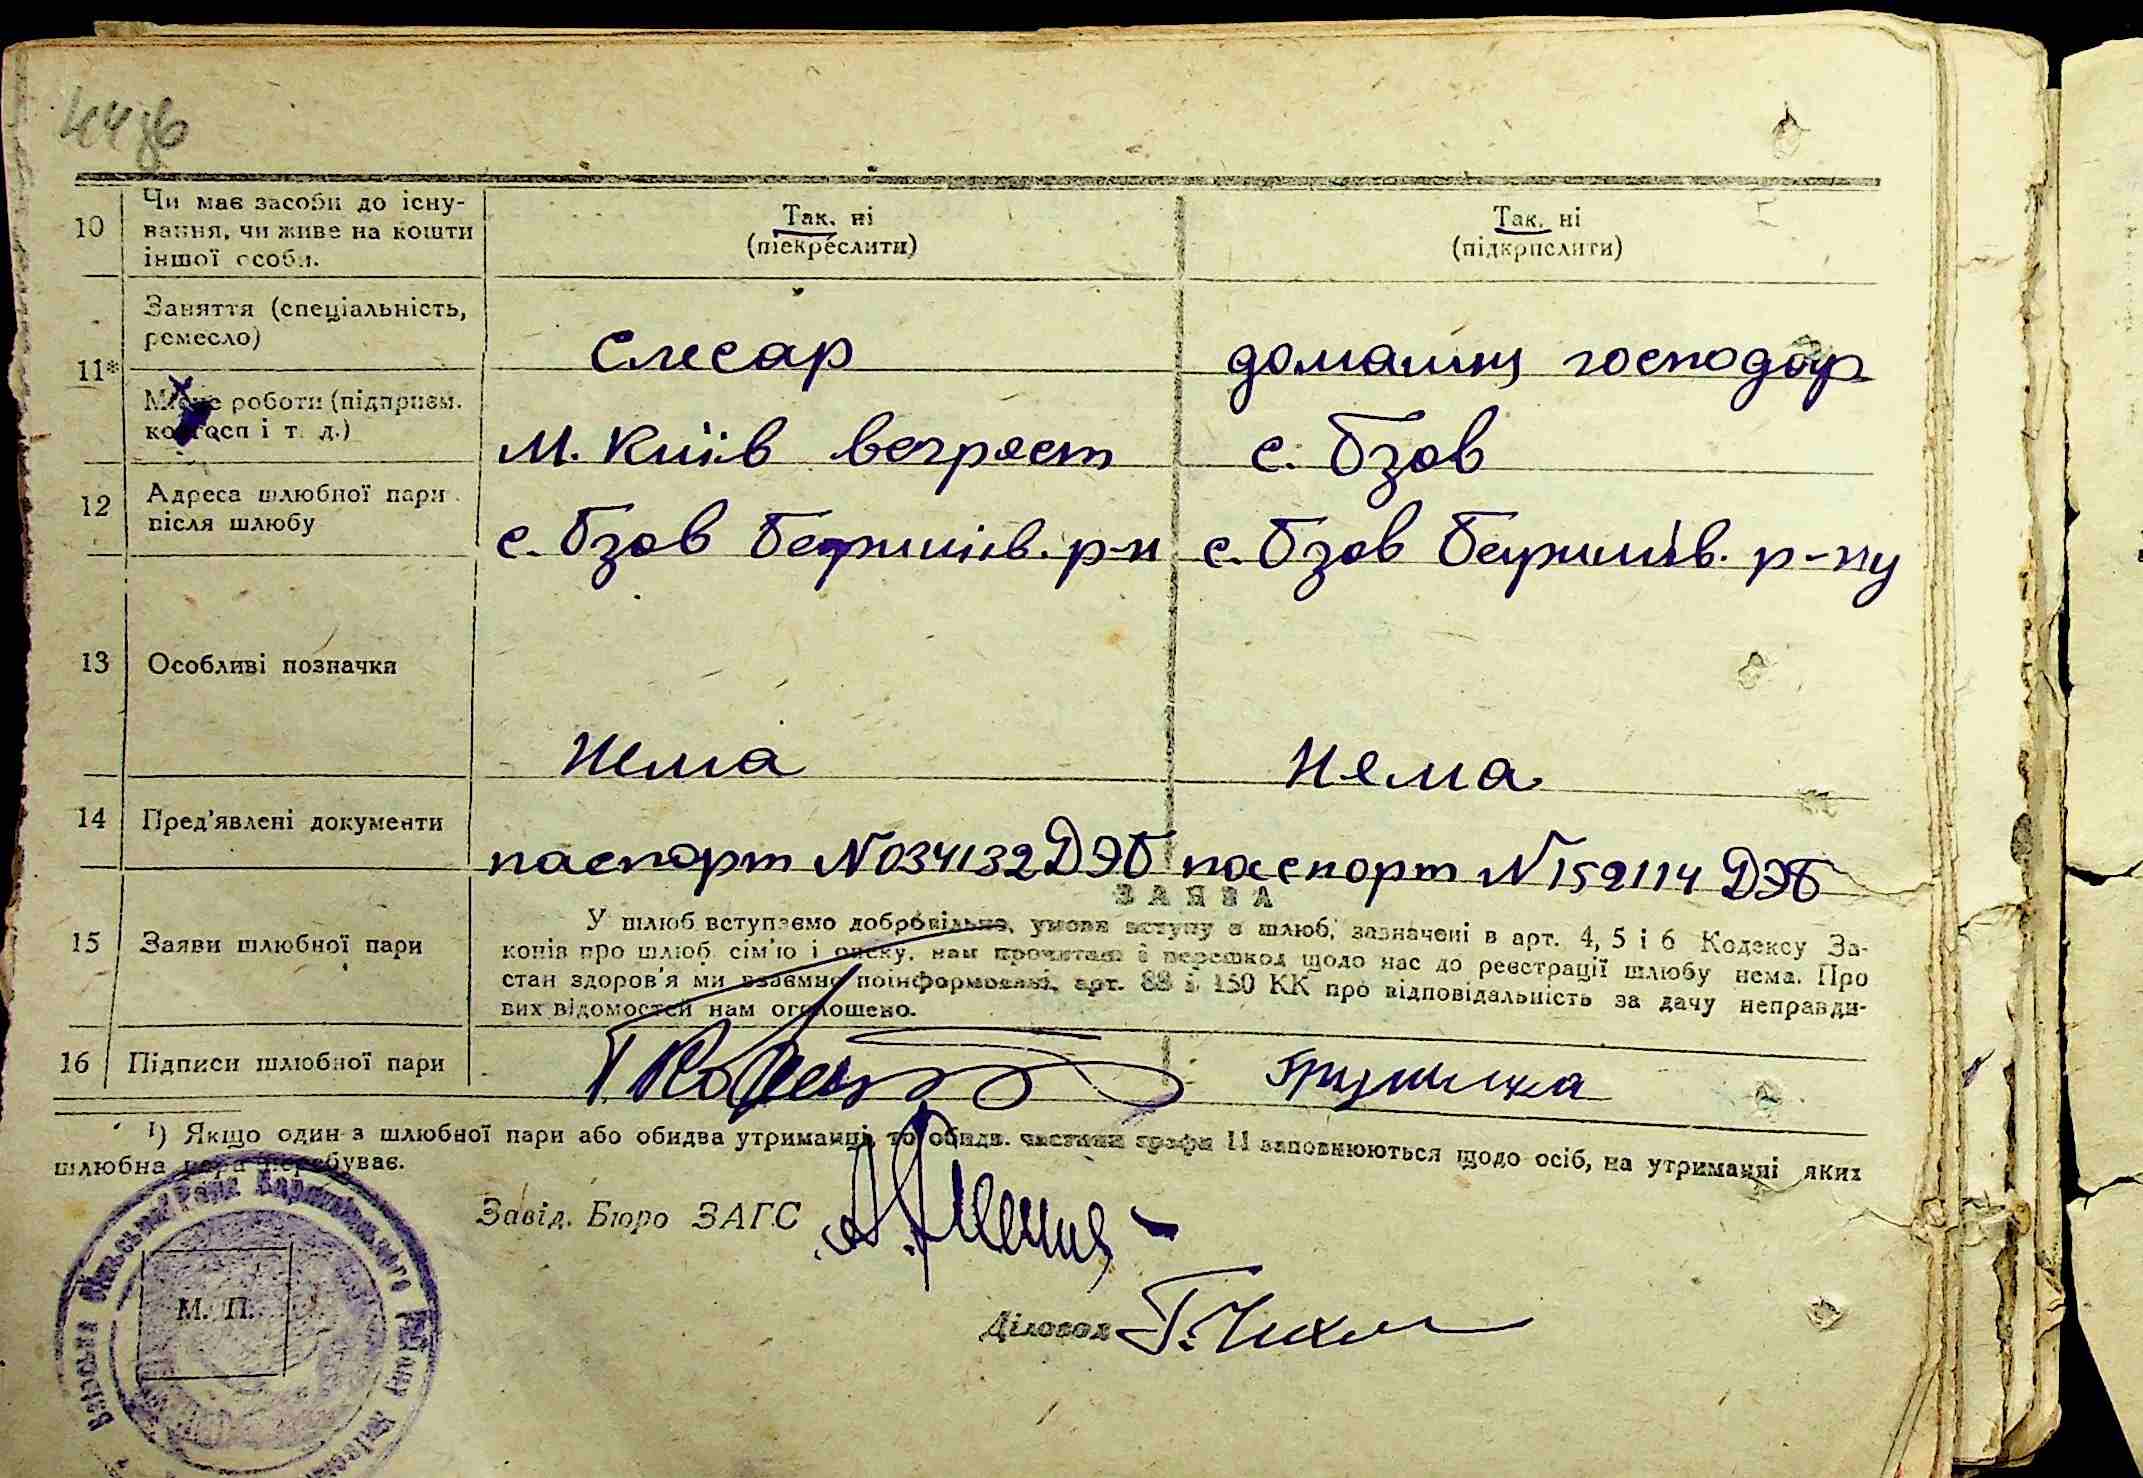 44зв
10 Чи має засоби до існу-
вання, чи живе на кошти
іншої особи.
Так, ні
(піекреслити)
Так, ні
(підкрпслити)
11* Заняття (спеціальність,
ремесло)
слесар
домашнє господар
Місце роботи (підприєм.
колгосп і т. д.)
м. Київ
с. Бзов
12 Адреса шлюбної пари
після шлюбу
с. Бзов Баришів. р-н
с. Бзов Баришів. р-ну
13 Особливі позначки
Нема
Нема
14 Пред'явлені документи
паспорт N034132 ДЭБ
паспорт N152114 ДЭБ
15 Заяви шлюбної пари
ЗАЯВА
У шлюб вступаємо добровільно, умови вступу в шлюб, зазначені в арт. 4, 5 і 6 Кодексу За-
конів про шлюб, сім'ю і опіку, нам прочитані і перешкод щодо нас до реєстрації шлюбу нема. Про
стан здоров'я ми взаємно поінформовані, арт. 88 і 150 КК про відповідальність за дачу неправди-
вих відомостей нам оголошено.
16 Підписи шлюбної пари
¹) Якщо один з шлюбної пари або обидва утриманці, то обидв. частини графи 11 заповнюються щодо осіб, на утриманні яких
шлюбна пара перебуває.
Завід. Бюро ЗАГС
М. П.
Діловод